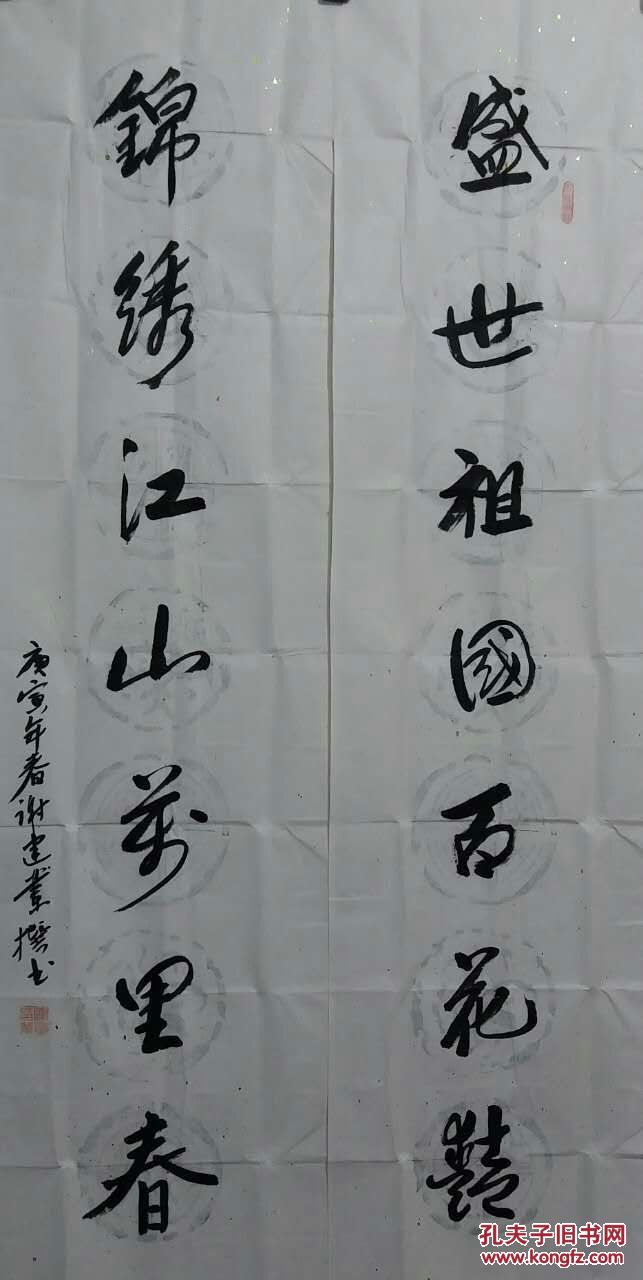 盛世祖國百花艷
錦綉江山萬里春
庚寅年春谢建業撰书
孔夫子旧书网
www.kongfz.com